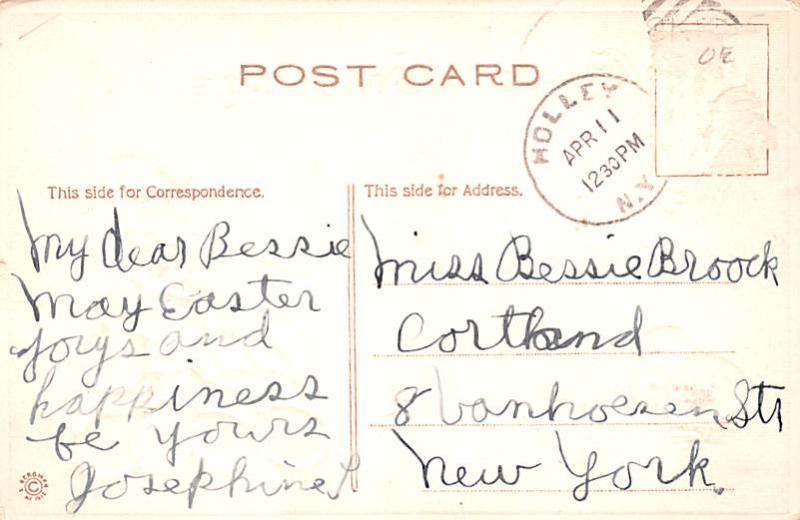 POST CARD
OE
HOLLEY
APR 11
1230PM
N.Y.
This side for Correspondence.
My dear Bessie
May Easter
Joys and
happiness
be yours
Josephine
This side for Address.
Miss Bessie Broock
Cortland
8 Vanhoesen Str
New York.
© S. BERGMAN